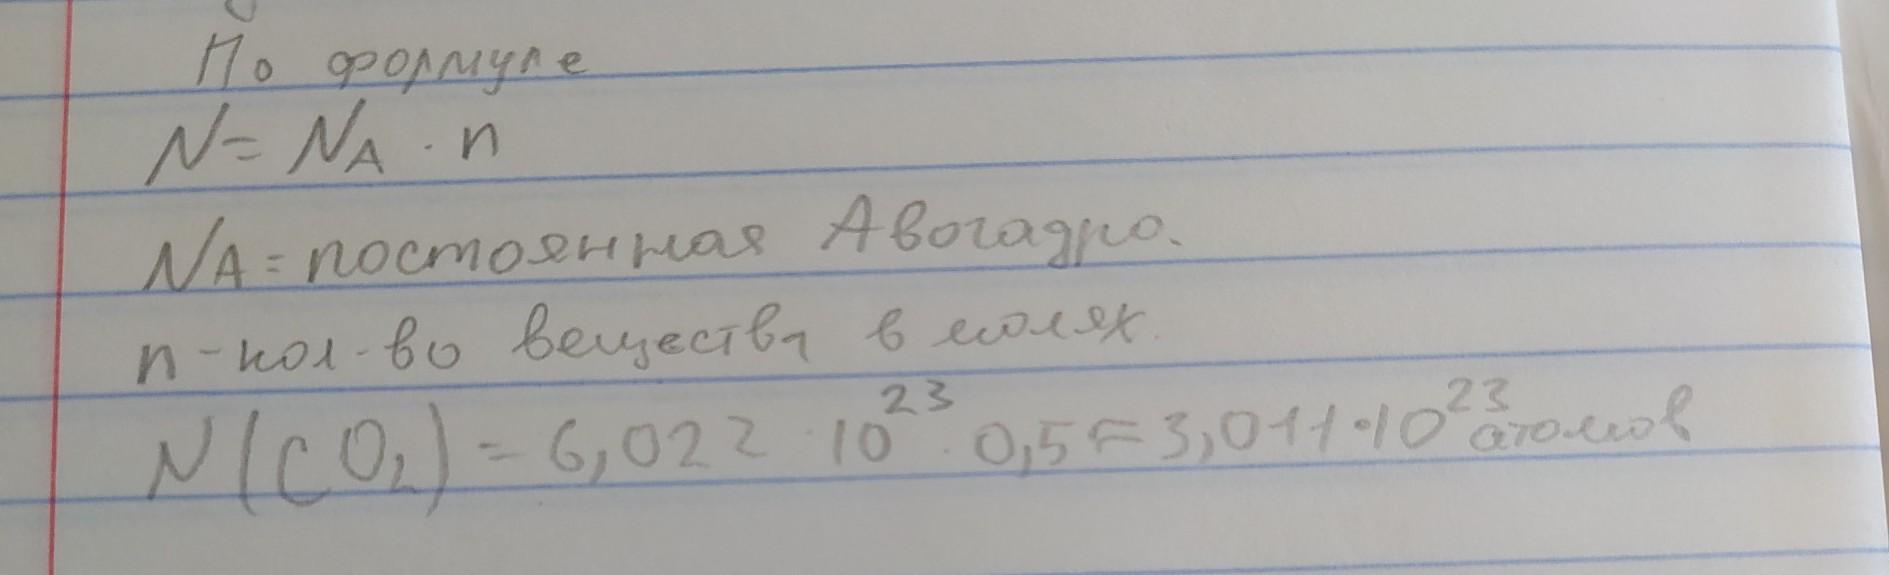 По формуле
N = NA · n
NA = постоянная Авогадро.
n - кол-во вещества в молях.
N(CO₂) = 6,022 · 10²³ · 0,5 = 3,011 · 10²³ атомов